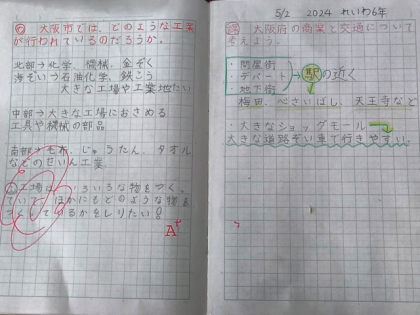 め 大阪市では、どのような工業
が行われているのだろうか。
北部→化学、機械、金ぞく
海ぞい→石油化学、鉄こう
大きな工場や工業地たい
中部→大きな工場におさめる
工具や機械の部品
南部→毛布、じゅうたん、タオル
などのせんい工業
工場は、いろいろな物をつく
ていて、ほかにもどのような物を
つくっているかをしりたい!
A+
5/2 2024 れいわ6年
大阪府の商業と交通について
考えよう。
・問屋街
・デパート
・地下街
駅の近く
梅田、べさいばし、天王寺など
・大きなショッグモール
大きな道路ぞい車で行きやすい。